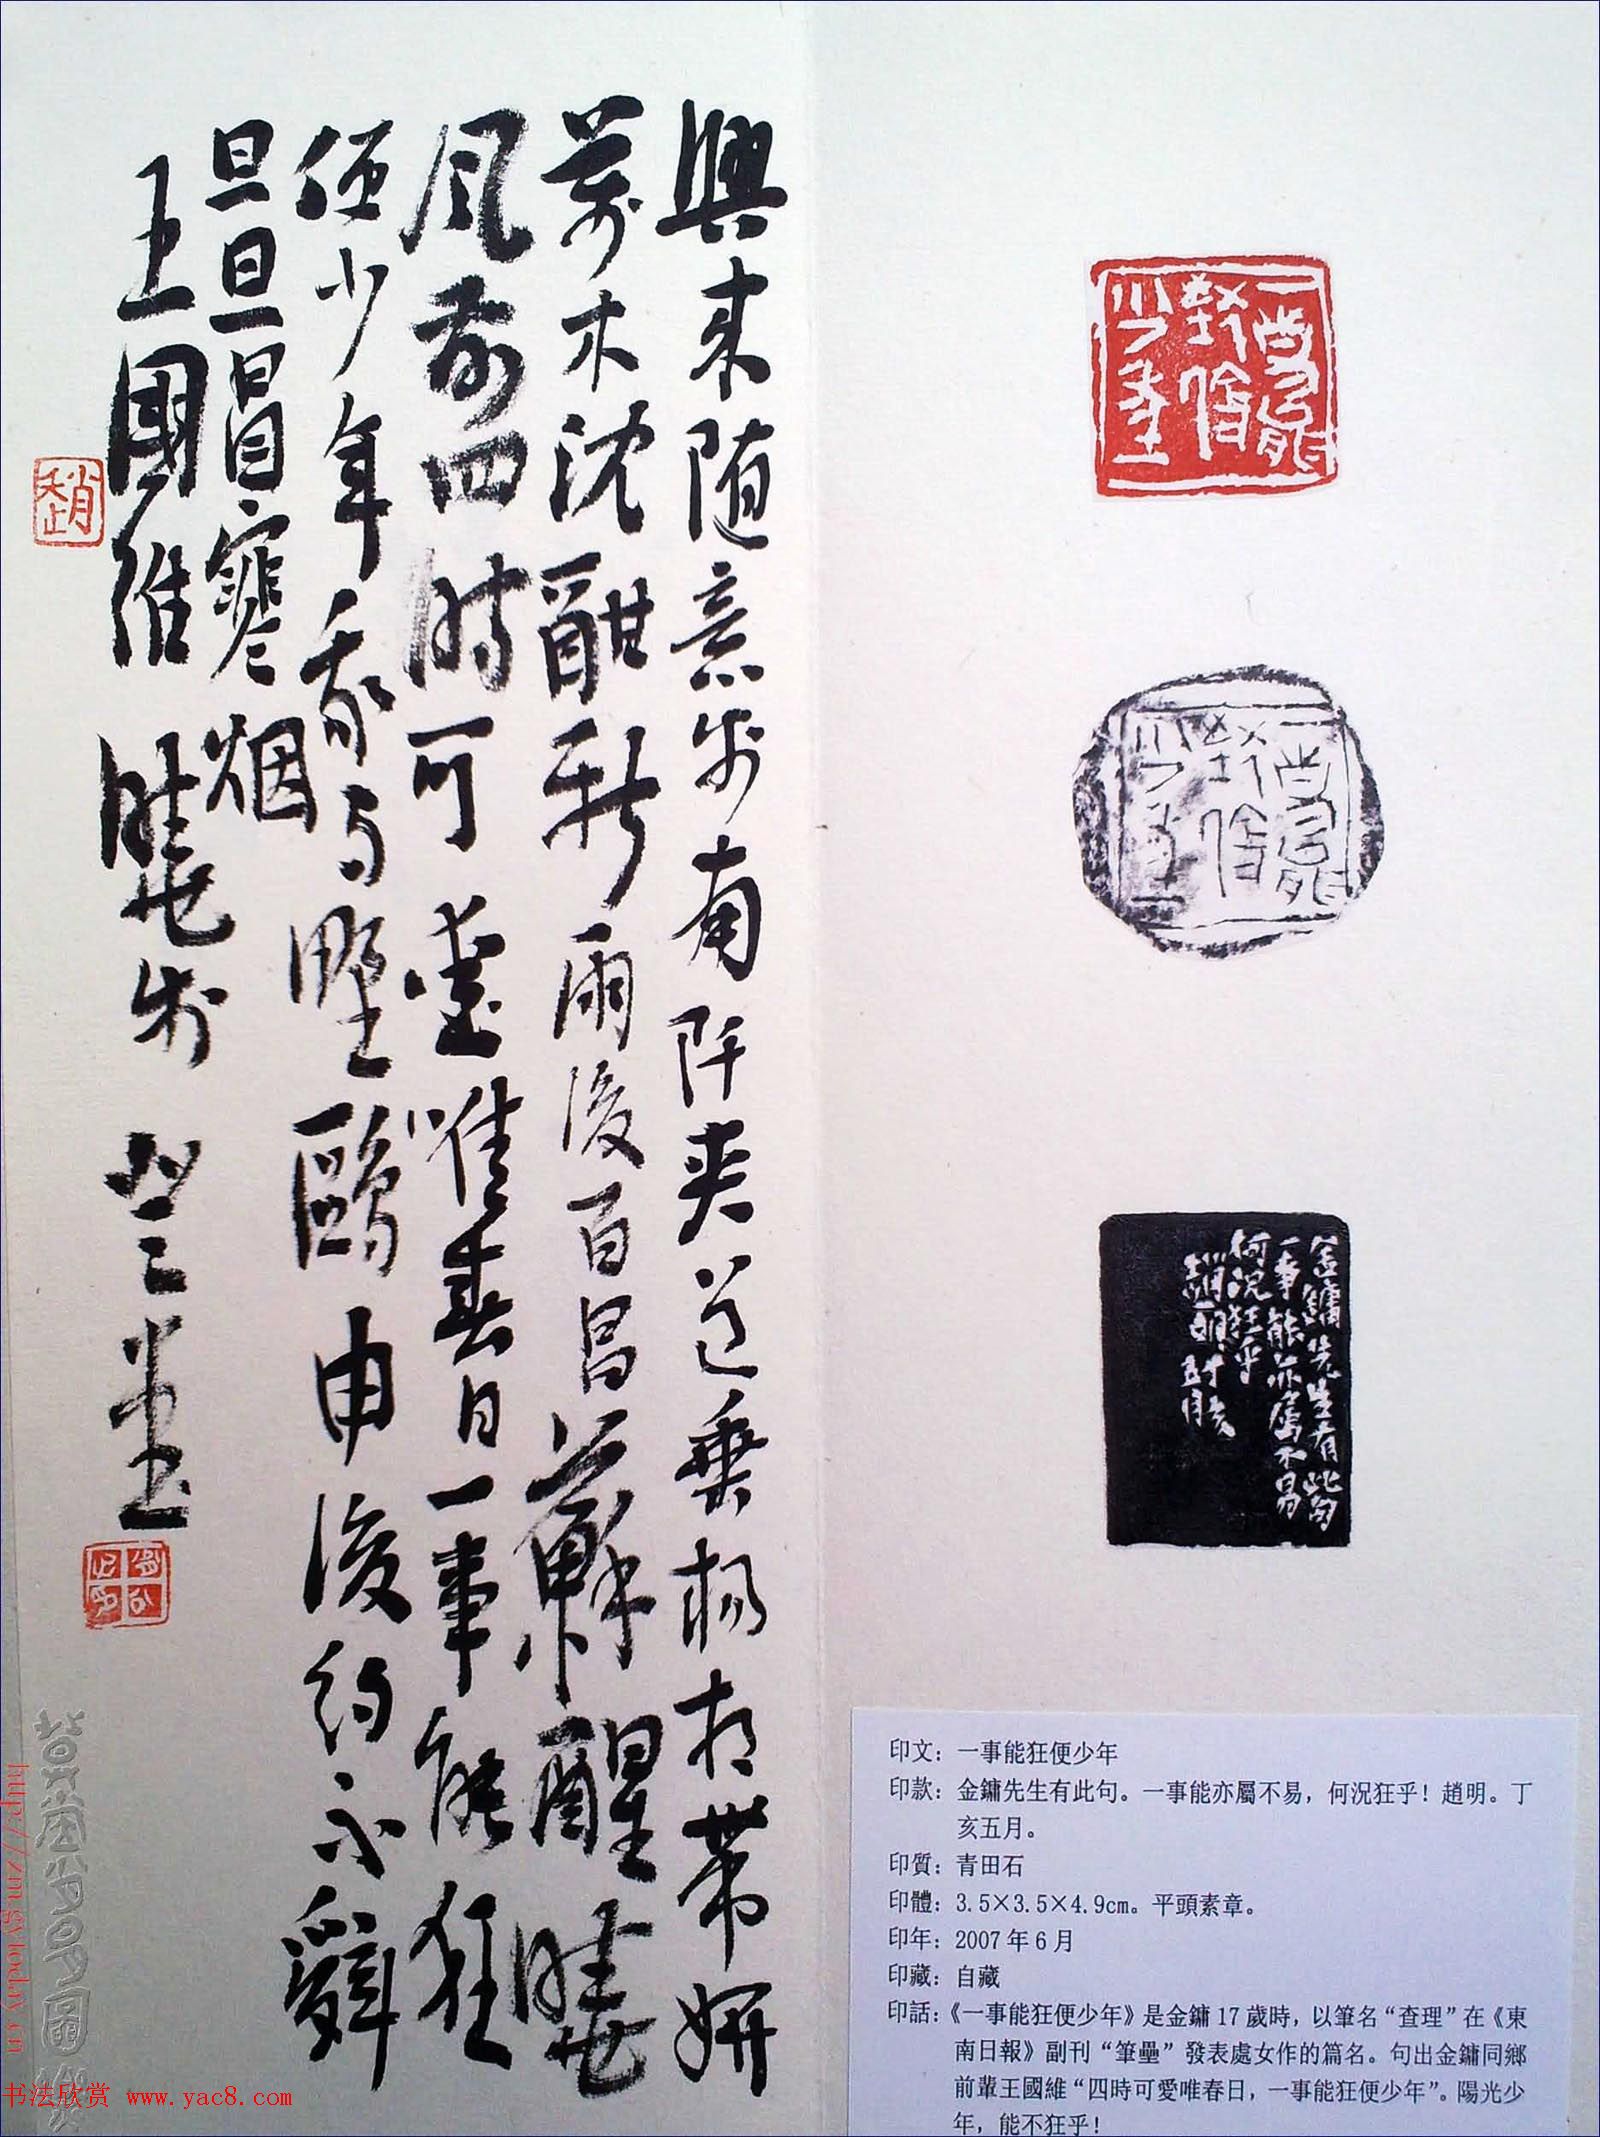 一事能
狂便
少年
一事能
狂便
少年
金鏞先生有此句
一事能亦屬不易
何況狂乎
印文：一事能狂便少年
印款：金鏞先生有此句。一事能亦屬不易，何況狂乎！趙明。丁
亥五月。
印質：青田石
印體：3.5×3.5×4.9cm。平頭素章。
印年：2007年6月
印藏：自藏
印話：《一事能狂便少年》是金鏞17歲時，以筆名“查理”在《東
南日報》副刊“筆壘”發表處女作的篇名。句出金鏞同鄉
前輩王國維“四時可愛唯春日，一事能狂便少年”。陽光少
年，能不狂乎！
興来随意步南阡夾道垂楊相帶妍
萬木沈酣新雨後百昌蘇醒曉
風前四時可愛唯春日一事能狂
便少年我与野鷗申後約不辭
旦旦冒寒烟
王國維曉步
趙
http://zmgy.today.cn
书法欣赏 www.yac8.com